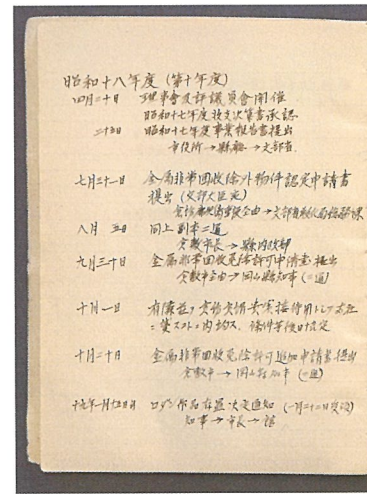 昭和十八年度(第十年度)
四月二十日 理事會及評議員會開催
昭和十七年度收支決算書承認
二十五日 昭和十七年度事業報告書提出
市役所→縣廳→文部省
七月三十一日 金属非常回收除外物件認定申請書
提出(文部大臣宛)
八月 五日 同上副本二通
倉敷市長→縣内政部
九月三十日 金属非常回收免除許可申請書提出
倉敷市長経由→岡山縣知事(二通)
十月一日
條件等後日決定
十月二十日 金属非常回收免除許可追加申請書提出
倉敷市→岡山縣知事(二通)
十九年一月十五日付 ロダン作品存置決定通知(一月二十二日受領)
知事→市長→館